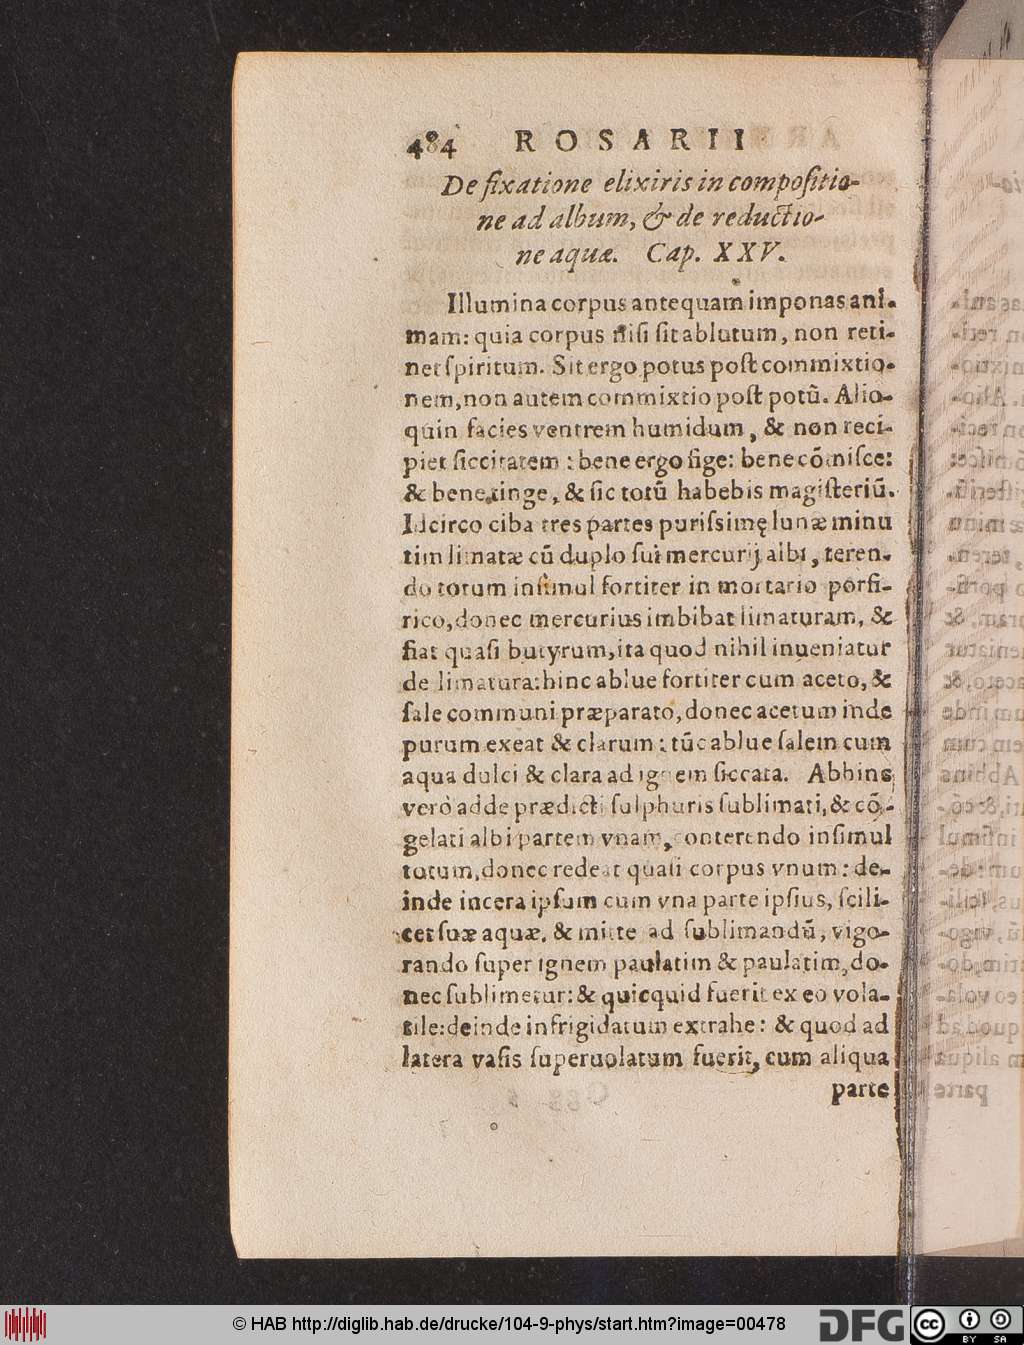 484 ROSARII
De fixatione elixiris in compositio-
ne ad album, & de reductio-
ne aquæ. Cap. XXV.
Illumina corpus antequam imponas ani-
mam: quia corpus nisi sit ablutum, non reti-
net spiritum. Sit ergo potus post commixtio-
nem, non autem commixtio post potū. Alio-
quin facies ventrem humidum, & non reci-
piet siccitatem: bene ergo fige: bene cōmisce:
& bene tinge, & sic totū habebis magisteriū.
Idcirco ciba tres partes purissimę lunæ minu
tim limatæ cū duplo sui mercurij albi, teren-
do totum insimul fortiter in mortario porfi-
rico, donec mercurius imbibat limaturam, &
fiat quasi butyrum, ita quod nihil inueniatur
de limatura: hinc ablue fortiter cum aceto, &
sale communi præparato, donec acetum inde
purum exeat & clarum: tūc ablue salem cum
aqua dulci & clara ad ignem siccata. Abhinc
vero adde prædicti sulphuris sublimati, & cō-
gelati albi partem vnam, conterendo insimul
totum, donec redeat quasi corpus vnum: de-
inde incera ipsum cum vna parte ipsius, scili-
cet suæ aquæ. & mitte ad sublimandū, vigo-
rando super ignem paulatim & paulatim, do-
nec sublimetur: & quicquid fuerit ex eo vola-
tile: deinde infrigidatum extrahe: & quod ad
latera vasis superuolatum fuerit, cum aliqua
parte
© HAB http://diglib.hab.de/drucke/104-9-phys/start.htm?image=00478
DFG
cc BY SA